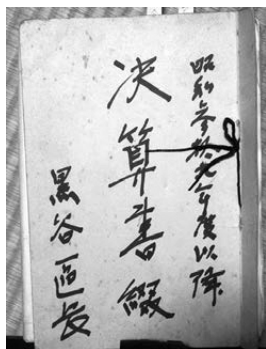 昭和参拾九年度以降
決算書綴
黒谷區長